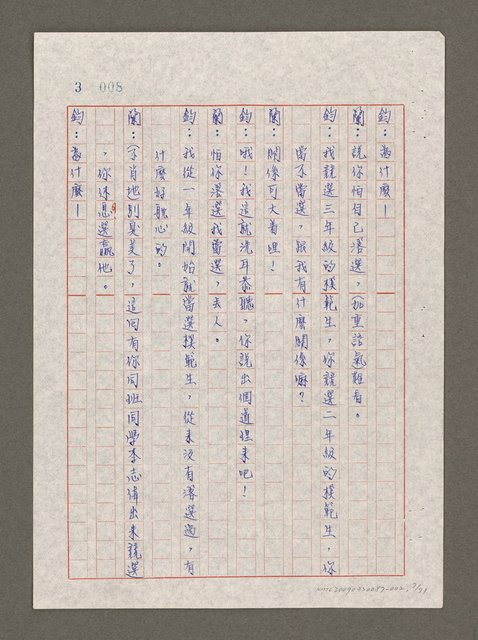 3 008
鈞：為什麼！
蘭：說你怕自己落選，（加重語氣）難看。
鈞：我競選三年級的模範生，你競選二年級的模範生，你
當不當選，跟我有什麼關係嘛？
蘭：關係可大着哩！
鈞：哦！我這就洗耳恭聽，你說出個道理來吧！
蘭：怕你落選我當選，丟人。
鈞：我從一年級開始就當選模範生，從來沒有落選過，有
什麼好聽心的。
蘭：（不肖地）別臭美了，這回有你同班同學李志偉出來競選
，你休息選贏他。
鈞：為什麼！